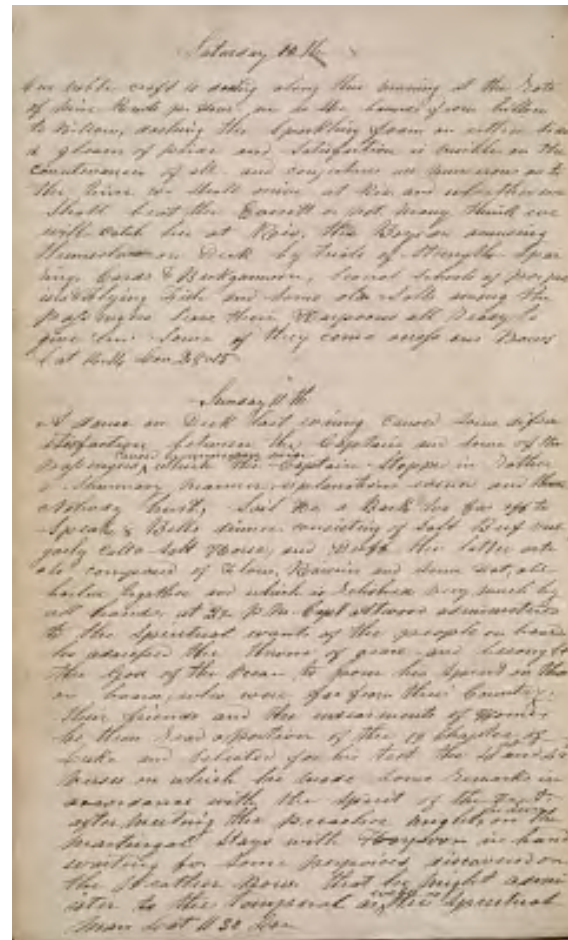 Saturday 10th
Our noble craft is darting along this morning at the rate
of nine Knots per hour, on she bounds from billow
to billow, dashing the Sparkling foam on either side
a gleam of pride and Satisfaction is visible on the
countenances of all and conjectures are numerous as to
the time we shall arrive at Rio and whether we
Shall beat the or not many think we
will catch her at Rio, the Boys are amusing
themselves on Deck by trials of Strength Spar
ring, Cards & Backgammon, Several Schools of porpoi
Flying Fish and some among the
passengers have their Harpoons all ready to
give some of they come across our Bows
Lat Lon
Sunday 11th
A dance on Deck last evening caused Some dissa
tisfaction between the Captain and some of the
passengers, which the Captain Stopped in rather
a Summary manner, explanations ensued and
Nobody hurt, Sail Ho a Bark too far off to
Speak, 2 Bells dinner consisting of Salt Beef vul
garly called Salt Horse, and Duff the latter arti
cle composed of Flour, Raisins and some fat, all
boiled together and which is relished very much by
all hands, at P.M. Capt Atwood administered
to the Spiritual wants of the people on board
he addressed the throne of grace and besought
the God of the Ocean to pour his Spirit on those
on board, who were far from their Country,
their friends and the endearments of Home,
he then read a portion of the 19 Chapter of
Luke and Selected for his text the and
verses on which he made Some remarks in
accordance with the Spirit of the text.
after meeting the preacher might on the
martingal Stays with Harpoon in hand
waiting for Some porpoises discovered on
the Weather Bow that he might admin
ister to the temporal as the Spiritual
man Lat 11 30 Lon